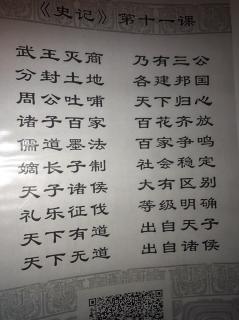 《史记》第十一课
武王灭商 乃有三公
分封土地 各建邦国
周公吐哺 天下归心
诸子百家 百花齐放
儒道墨法 百家争鸣
嫡长子制 社会稳定
天子诸侯 大有区别
礼乐征伐 等级明确
天下有道 出自天子
天下无道 出自诸侯